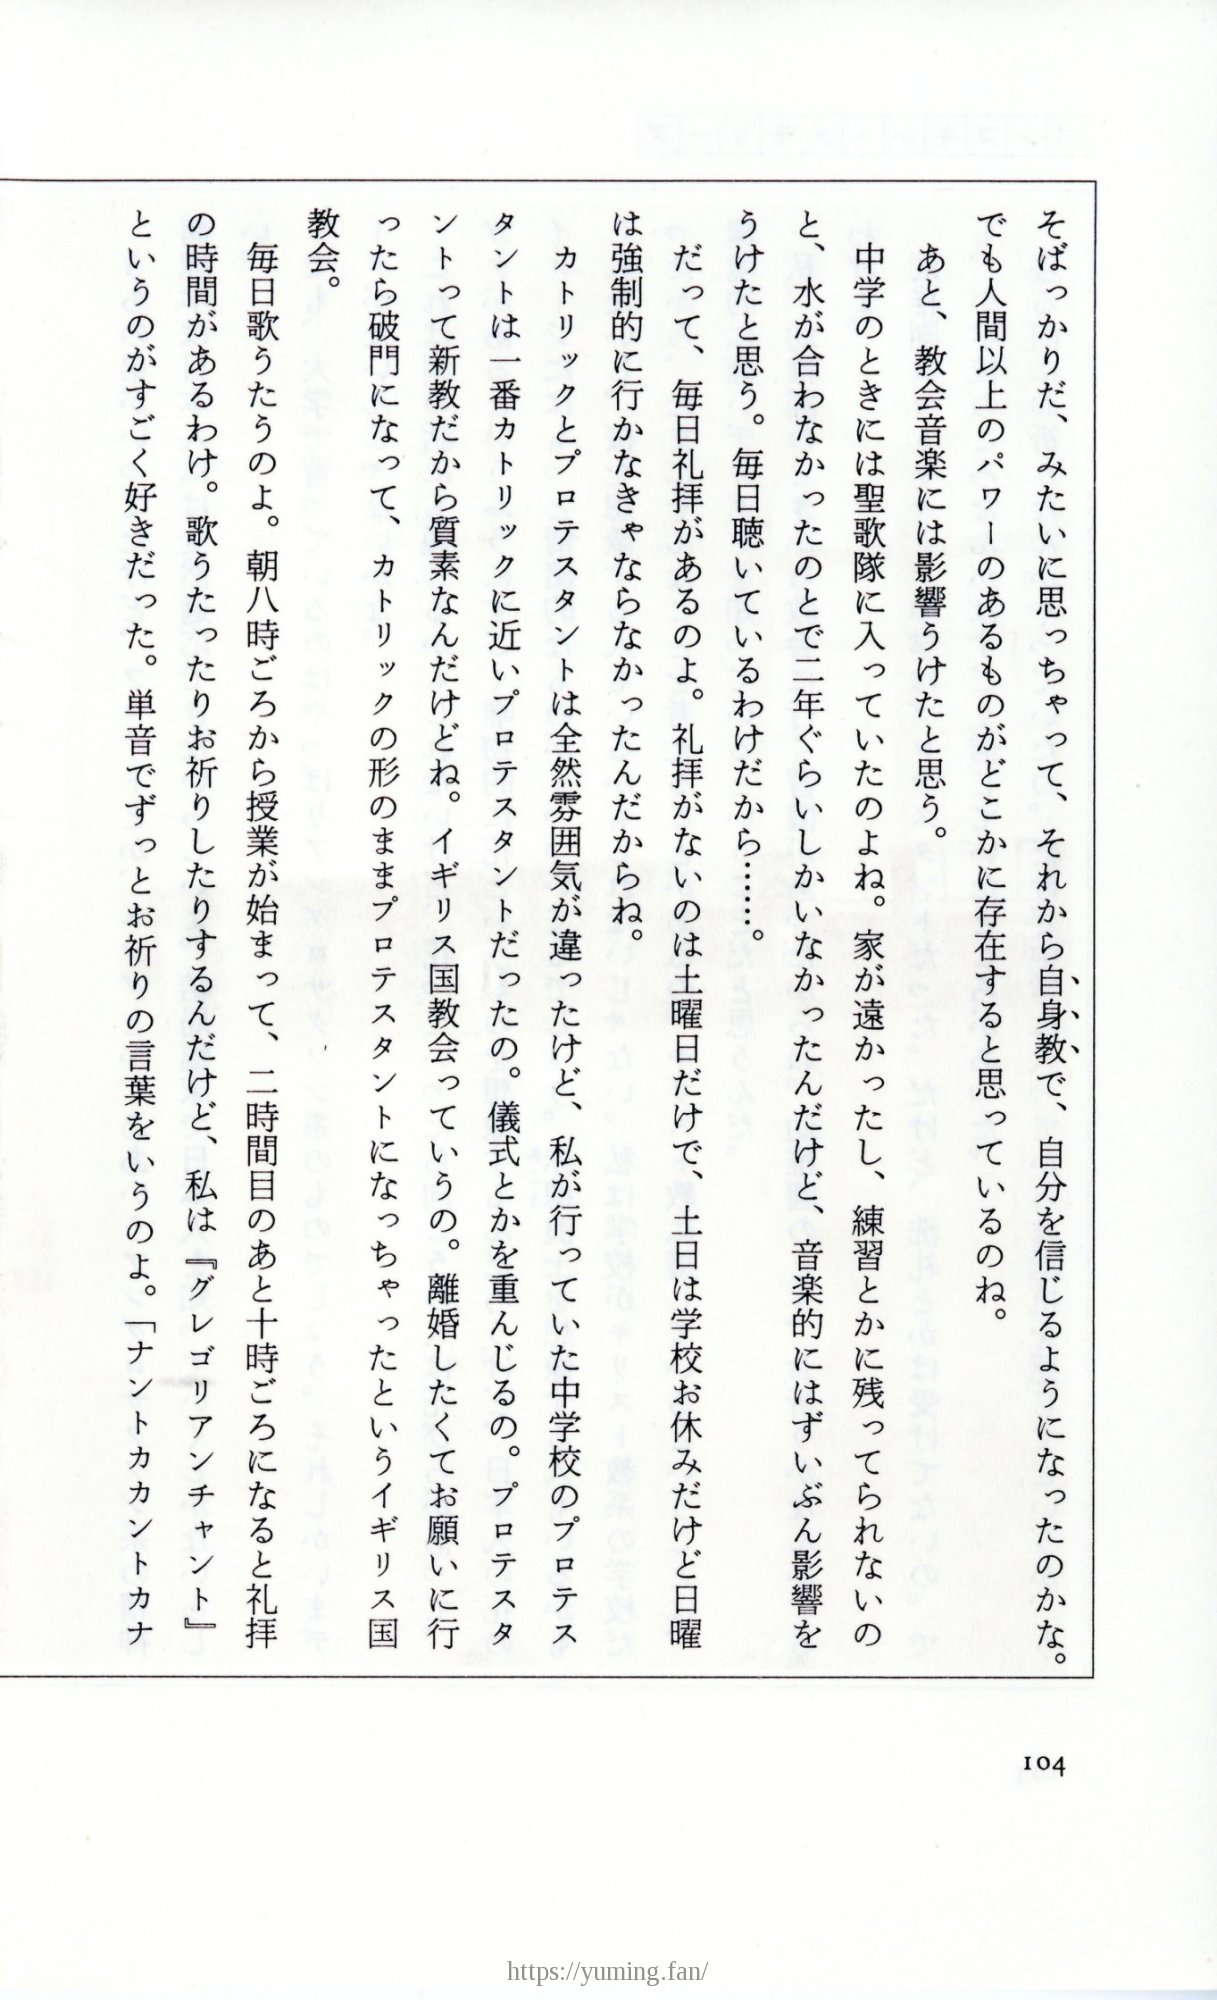 そばっかりだ、みたいに思っちゃって、それから自身教で、自分を信じるようになったのかな。
でも人間以上のパワーのあるものがどこかに存在すると思っているのね。
あと、教会音楽には影響うけたと思う。
中学のときには聖歌隊に入っていたのよね。家が遠かったし、練習とかに残ってられないの
と、水が合わなかったのとで二年ぐらいしかいなかったんだけど、音楽的にはずいぶん影響を
うけたと思う。毎日聴いているわけだから……。
だって、毎日礼拝があるのよ。礼拝がないのは土曜日だけで、土日は学校お休みだけど日曜
は強制的に行かなきゃならなかったんだからね。
カトリックとプロテスタントは全然雰囲気が違ったけど、私が行っていた中学校のプロテス
タントは一番カトリックに近いプロテスタントだったの。儀式とかを重んじるの。プロテスタ
ントって新教だから質素なんだけどね。イギリス国教会っていうの。離婚したくてお願いに行
ったら破門になって、カトリックの形のままプロテスタントになっちゃったというイギリス国
教会。
毎日歌うたうのよ。朝八時ごろから授業が始まって、二時間目のあと十時ごろになると礼拝
の時間があるわけ。歌うたったりお祈りしたりするんだけど、私は『グレゴリアンチャント』
というのがすごく好きだった。単音でずっとお祈りの言葉をいうのよ。「ナントカカントカナ
104
https://yuming.fan/